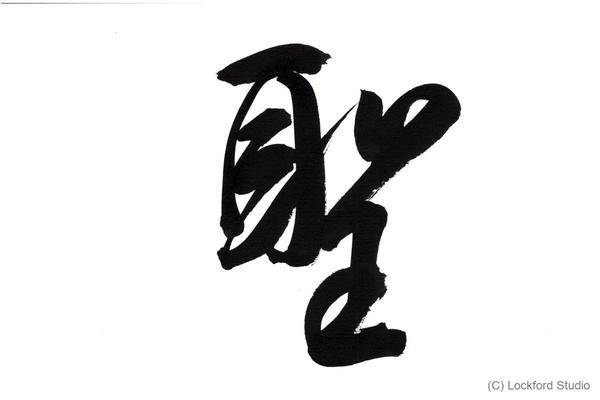 聖
(C) Lockford Studio